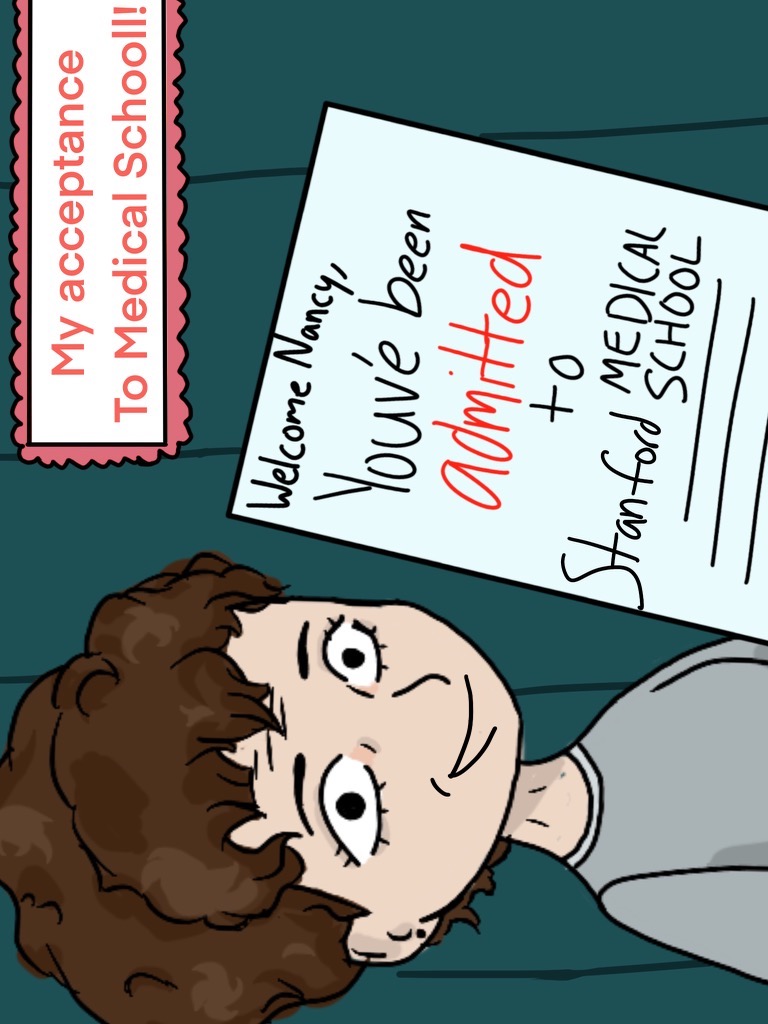 My acceptance
To Medical School!!
Welcome Nancy,
You've been
admitted
to
Stanford MEDICAL
SCHOOL